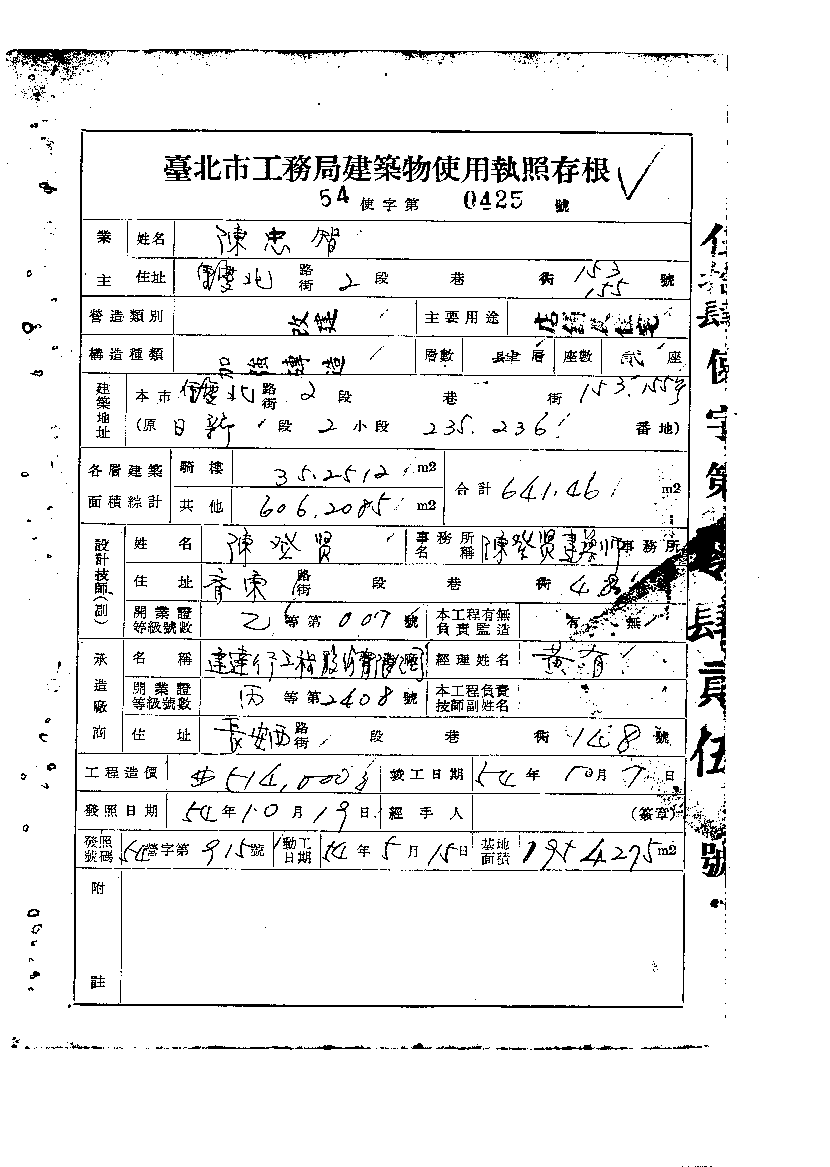 臺北市工務局建築物使用執照存根
54 使字第 0425 號
業主 姓名 陳忠智
住址 重慶北 路街 2 段 巷 衖 153 155 號
營造類別 改建 主要用途 店鋪及住宅
構造種類 加強磚造 層數 肆層 座數 貳座
建築地址 本市 重慶北 路街 2 段 巷 衖 153.155號
(原 日新 段 2 小段 235.236 番地)
各層建築面積綜計 騎樓 35.2512 m2 合計 641.46 m2
其他 606.2085 m2
設計技師(副) 姓名 陳登賢 事務所名稱 陳登賢建築師事務所
住址 路街 段 巷 衖 48
開業證等級號數 乙等第 007 號 本工程有無負責監造 有 無
承造廠商 名稱 經理姓名 黃有
開業證等級號數 丙等第 2408 號 本工程負責技師副姓名
住址 長安西 路街 段 巷 衖 148 號
工程造價 $514,000 竣工日期 54 年 10 月 7 日
發照日期 54 年 10 月 19 日 經手人 (簽章)
發照號碼 54 營字第 915 號 動工日期 54 年 5 月 15 日 基地面積 195.4275 m2
附註
伍拾肆使字第零肆貳伍號